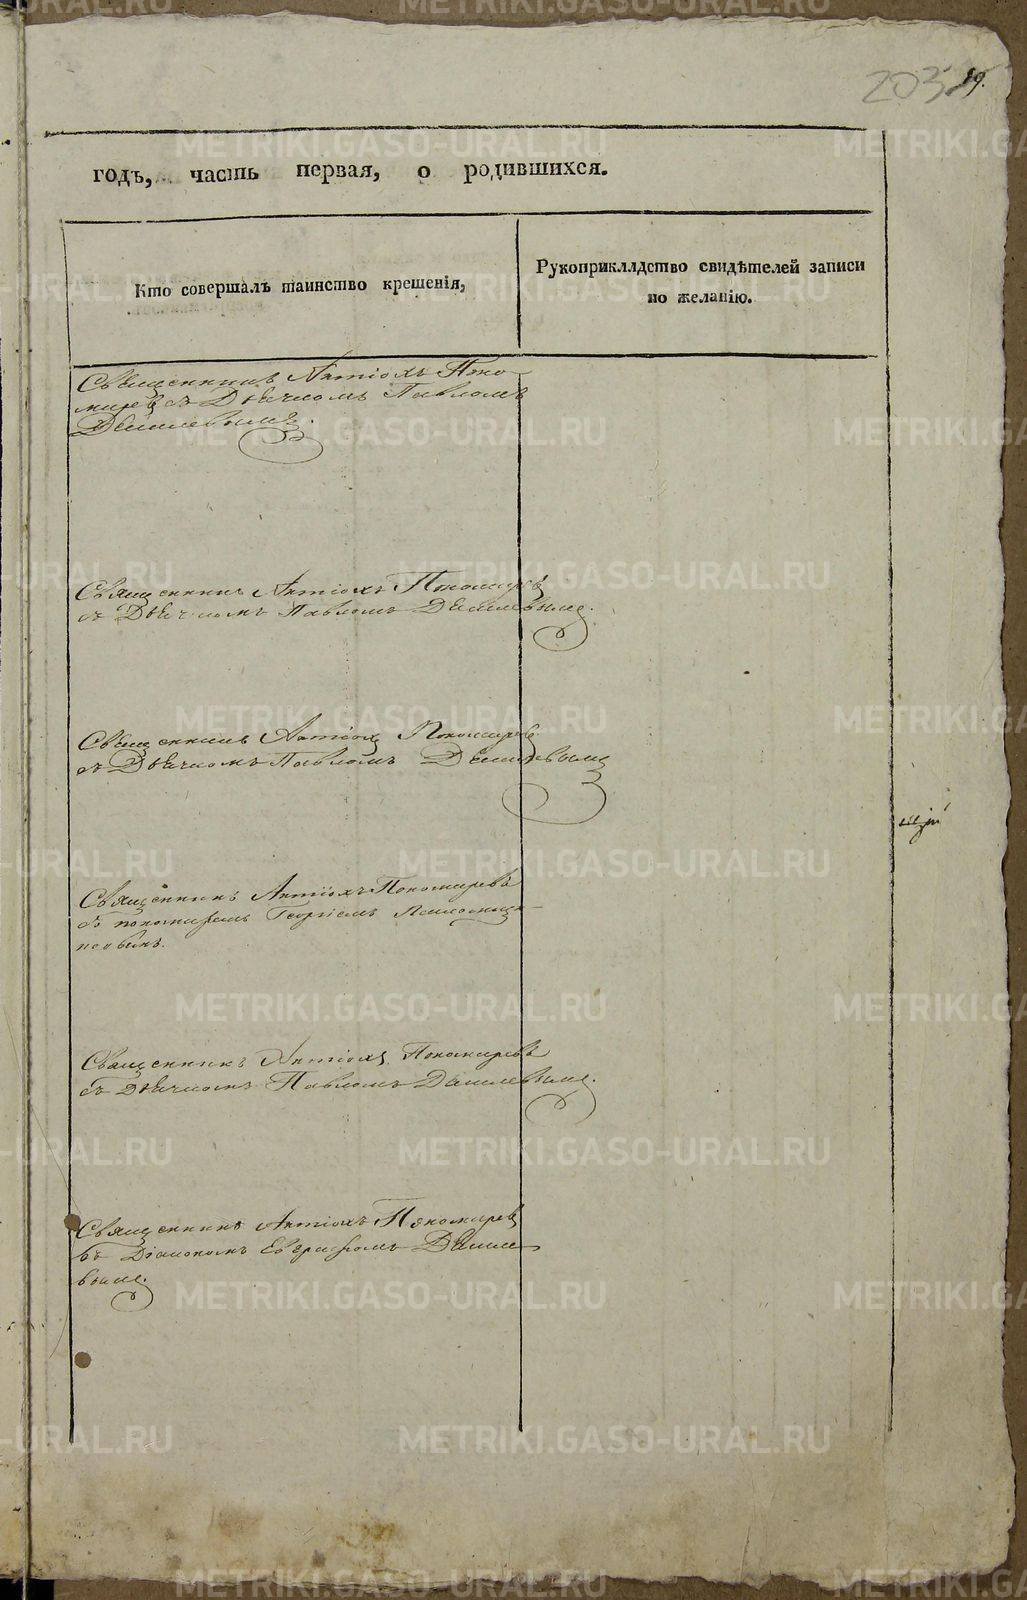 203
59.
годъ, часть первая, о родившихся.
Кто совершалъ таинство крещенія,
Рукоприкладство свидѣтелей записи
по желанію.
Священникъ Антіохъ Поно-
маревъ съ Дьячкомъ Павломъ
Священникъ Антіохъ Пономаревъ
съ Дьячкомъ Павломъ
Священникъ Антіохъ Пономаревъ
съ Дьячкомъ Павломъ
Священникъ Антіохъ Пономаревъ
съ пономаремъ Георгіемъ
Священникъ Антіохъ Пономаревъ
съ Дьячкомъ Павломъ
Священникъ Антіохъ Пономаревъ
съ Діакономъ Евграфомъ
METRIKI.GASO-URAL.RU